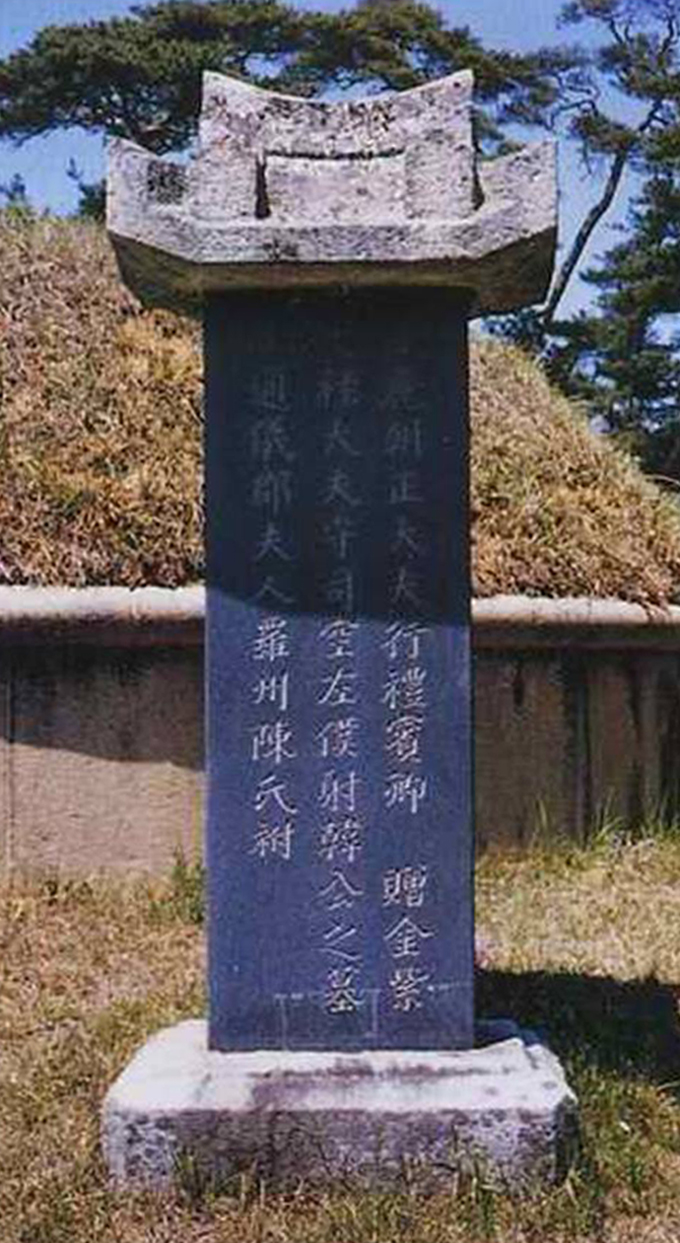 高麗朝正大夫行禮賓卿 贈金紫
光祿大夫守司空左僕射韓公之墓
通儀郡夫人羅州陳氏祔